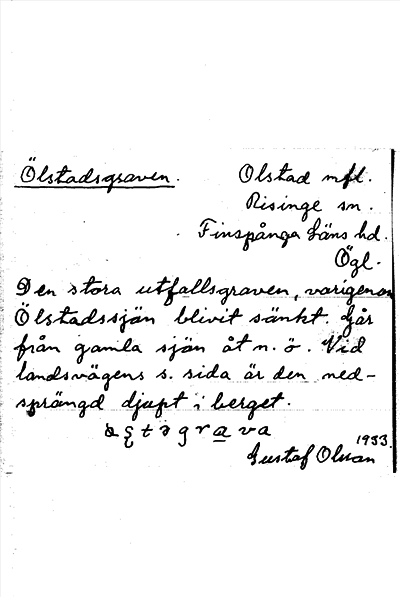 Ölstadsgraven.
Olstad mfl.
Risinge sn.
Finspånga Läns hd.
Ögl.
Den stora utfallsgraven, varigenom
Ölstadssjön blivit sänkt. Går
från gamla sjön åt n. ö. Vid
landsvägens s. sida är den ned-
sprängd djupt i berget.
1933.
Gustaf Olsson